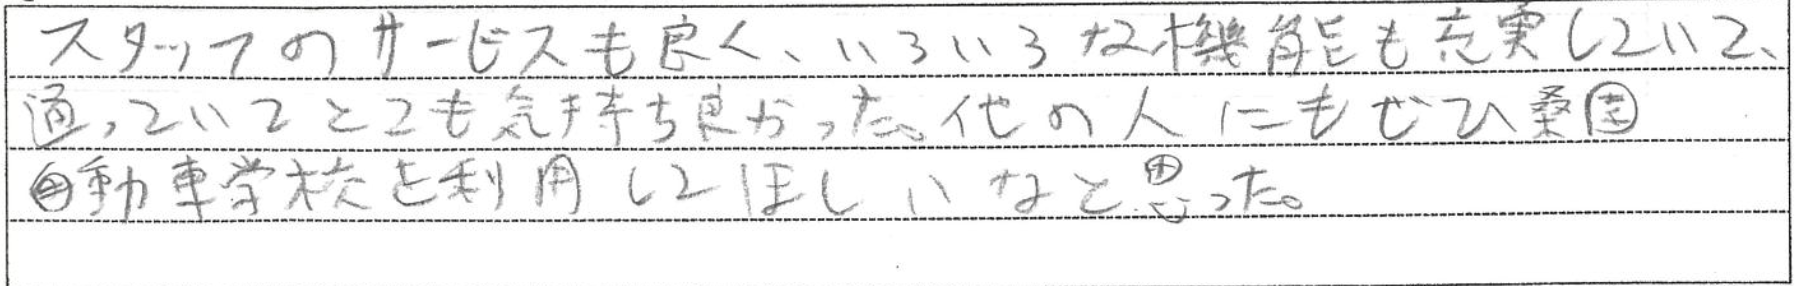 スタッフのサービスも良く、いろいろな機能も充実していて、
通っていてとても気持ち良かった。他の人にもぜひ桑園
自動車学校を利用してほしいなと思った。